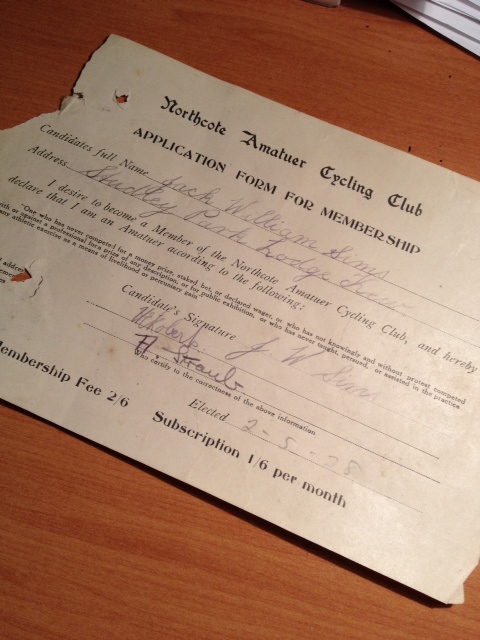 Northcote Amatuer Cycling Club
APPLICATION FORM FOR MEMBERSHIP
Candidates full Name Jack William Sims
Address Studley Park Lodge Kew
I desire to become a Member of the Northcote Amatuer Cycling Club, and hereby
declare that I am an Amatuer according to the following:
"One who has never competed for a money prize, staked bet, or declared wager, or who has not knowingly and without protest competed
with or against a professional for a prize of any description, or for public exhibition, or who has never taught, pursued, or assisted in the practice
any athletic exercise as a means of livelihood or pecuniary gain
Candidate's Signature J W Sims
address
A. Straub
who certify to the correctness of the above information
Elected 2-5-
Membership Fee 2/6
Subscription 1/6 per month